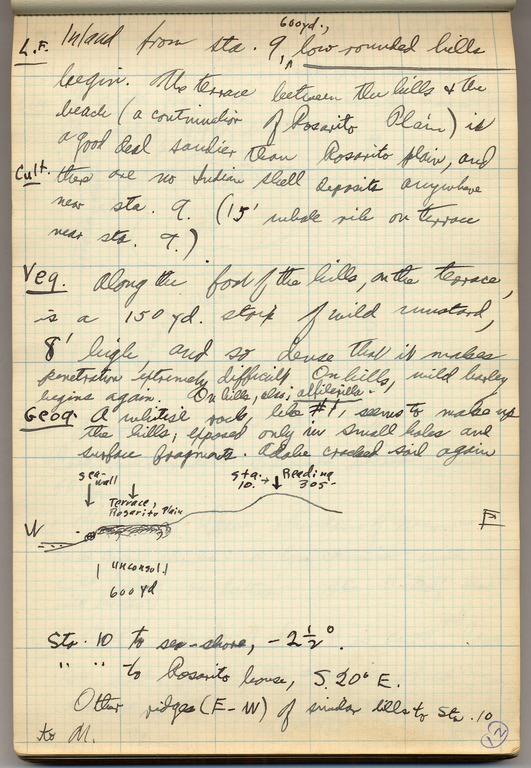 600 yd.,
L.F. Inland from sta. 9, ^ low rounded hills
begin. The terrace between the hills & the
beach (a continuation of Rosarito Plain) is
a good deal sandier than Rosarito plain, and
Cult. there are no Indian shell deposits anywhere
near sta. 9. (15' whale rib on terrace
near sta. 9.)
Veg. Along the foot of the hills, on the terrace,
is a 150 yd. strip of wild mustard,
8' high, and so dense that it makes
penetration extremely difficult. On hills, wild barley
begins again. On hills, also, alfilerilla.
Geog. A whitish rock, like #1, seems to make up
the hills; exposed only in small holes and
surface fragments. Adobe cracked soil again
sea-wall
Terrace, Rosarito Plain
sta. 10. → Reading 305-
W
E
unconsol.
600 yd
Sta. 10 to sea-shore, -2 1/2°.
" " to Rosarito house, S. 20° E.
Other ridges (E-W) of similar hills to Sta. 10
to N.
12